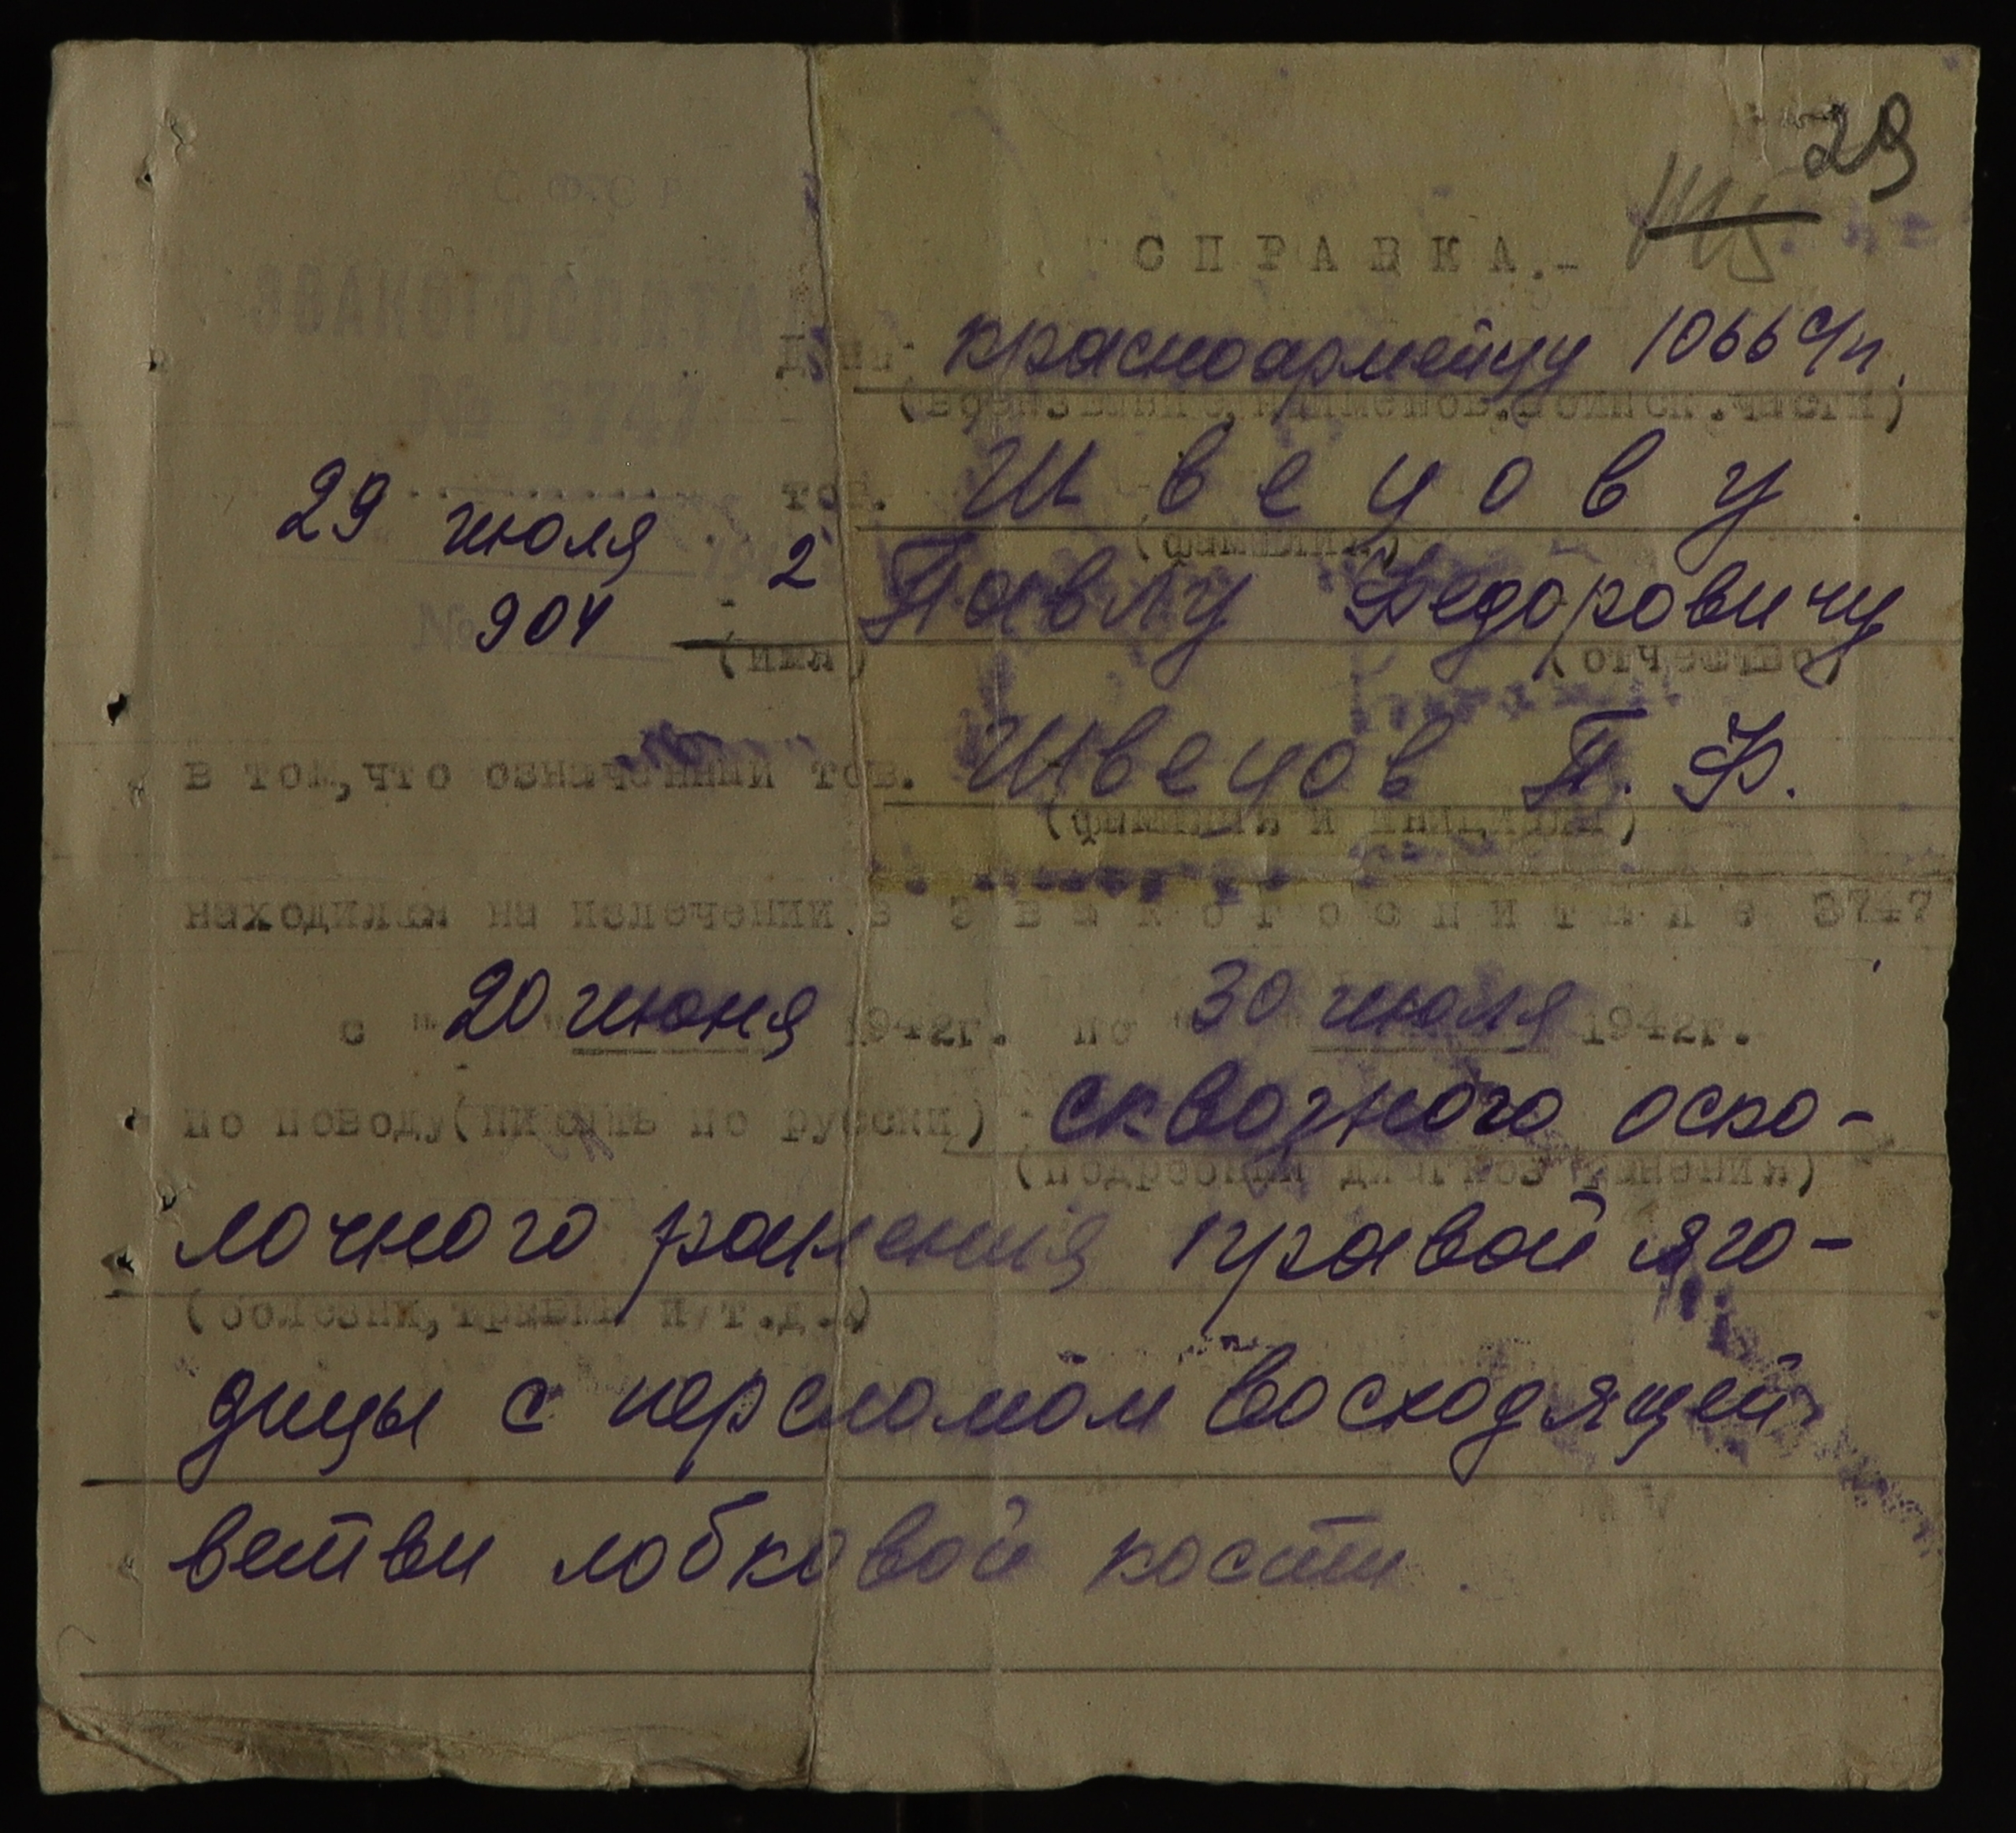 29
СФСР
ЭВАКОГОСПИТАЛ
№ 3747
29 июля 1942
№ 904
СПРАВКА.-
Дана красноармейцу 1066 с/п.
(воен.звание, наименов.воинск.части)
тов. Швецову
(фамилия)
Павлу Федоровичу
(имя) (отчество)
в том,что означенный тов. Швецов П. Ф.
(фамилия и инициалы)
находился на излечении в эвакогоспитале 3747
с " 20 " июня 1942г. по " 30 " июля 1942г.
по поводу(писать по русски) сквозного оско-
(подробный диагноз ранения)
лочного ранения правой яго-
(болезни,травмы и т.д.)
дицы с переломом восходящей
ветви лобковой кости.